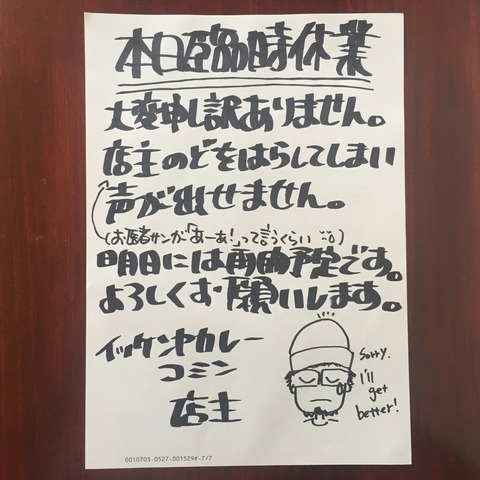 本日臨時休業
大変申し訳ありません。
店主のどをはらしてしまい
声が出せません。
(お医者サンが「あーあ!」って言うくらい)
明日には再開予定です。
よろしくお願いします。
イッケンヤカレー
コミン
店主
Sorry.
I'll
get
better!
0010703-0527-001529#-7/7